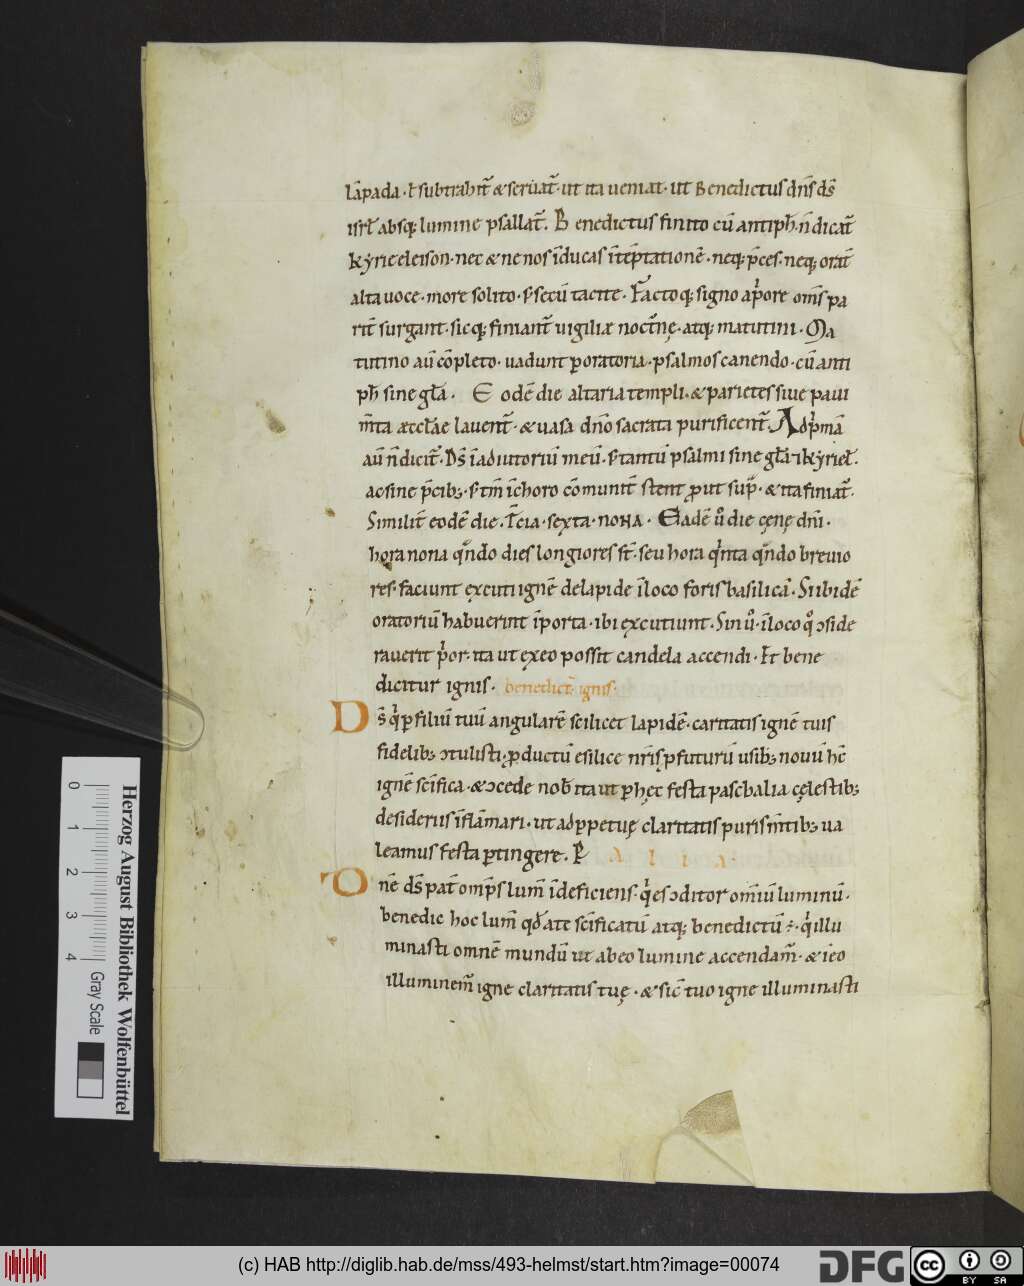 lāpada · ł subtrahit̄ & seruat̄ · ut ita ueniat · ut Benedictus dn̄s ds̄
isrł absq; lumine psallat̄. Benedictus finito cū antiph̄. n̄ dicat̄
kyrieeleison · nec & ne nos īducas ītēptationē · neq; p̄ces · neq; orat̄
alta uoce · more solito · s; secū tacite · Facto q; signo ap̍ore om̄s pa
rit̄ surgant · sicq; finiant̄ uigiliæ noct̄nę · atq; matutini · Ma
tutino au̅ cōpleto · uadunt p oratoria · psalmos canendo · cū anti
ph̄ sine gła · Eodē die altaria templi · & parietes siue paui
m̄ta æccłae lauent̄ · & uasa dn̄o sacrata purificent̄. Ad p̍mā
au̅ n̄ dicit̄. Ds̄ ī adiutoriū meū · s; tantū psalmi sine gła · 7 kyrieł.
ac sine p̄cib; · s; tm̄ ī choro cōmunit̄ stent put sup̄ · & ita finiat̄.
Similit̄ eodē die · t̄cia · sexta · nona · Eadē ů die cęnę dn̄i ·
hora nona qn̄do dies longiores st̄ · seu hora q̍nta qn̄do breuio
res · faciunt excuti ignē de lapide ī loco foris basilicā · Si ibidē
oratoriū habuerint ī porta · ibi excutiunt · Sin ů · ī loco q̊ ↄside
rauerit p̍or · ita ut ex eo possit candela accendi · Et bene
dicitur ignis · benedict̄ ignis ·
Ds̄ q̍ p filiū tuū angularē scilicet lapidē · caritatis ignē tuis
fidelib; ↄtulisti · pductū e silice nr̄is pfuturū usib; nouū hc̄
ignē scīfica · & ↄcede nob̄ ita ut p hęc festa paschalia cęlestib;
desideriis īflāmari · ut ad ppetuę claritatis puris m̄tib; ua
leamus festa ptingere. P Alia ·
Dn̄e ds̄ pat̄ omp̄s lum̄ īdeficiens · q̍ es ↄditor om̄iū luminū ·
benedic hoc lum̄ qđ a te scīficatū atq; benedictū ÷ · q̍ illu
minasti omnē mundū ut ab eo lumine accendam̄ · & i eo
illuminem̄ igne claritatis tuę · & sic̄ tuo igne illuminasti
0 1 2 3 4
Gray Scale
Herzog August Bibliothek Wolfenbüttel
(c) HAB http://diglib.hab.de/mss/493-helmst/start.htm?image=00074
DFG
cc BY SA